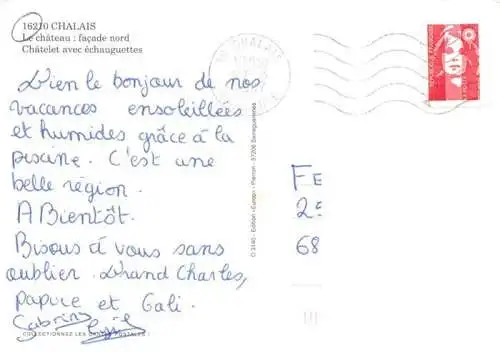 16210 CHALAIS
Le château : façade nord
Châtelet avec échauguettes
Bien le bonjour de nos
vacances ensoleillées
et humides grâce à la
piscine. C'est une
belle région.
A Bientôt.
Bisous à vous sans
oublier. Grand Charles,
Papuce et Gali.
Sabrina
COLLECTIONNEZ LES CARTES POSTALES
Edition - Europ - Pierron - 57206 Sarreguemines
CHALAIS
REPUBLIQUE FRANÇAISE
LA POSTE
FE
25
68